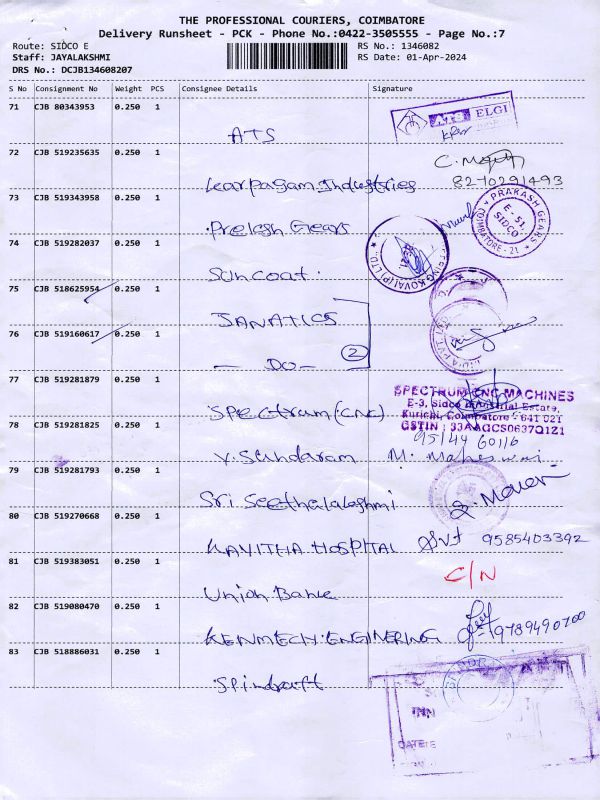 THE PROFESSIONAL COURIERS, COIMBATORE
Delivery Runsheet - PCK - Phone No.:0422-3505555 - Page No.:7
Route: SIDCO E
RS No.: 1346082
Staff: JAYALAKSHMI
RS Date: 01-Apr-2024
DRS No.: DCJB134608207
S No Consignment No Weight PCS Consignee Details Signature
71 CJB 80343953 0.250 1
ATS
ATS ELGI
72 CJB 519235635 0.250 1
Karpagam Industries
8270291493
73 CJB 519343958 0.250 1
Prakash Gears
PRAKASH GEARS
E-51, SIDCO
COIMBATORE - 21
74 CJB 519282037 0.250 1
Suncoat
75 CJB 518625954 0.250 1
JANATICS
76 CJB 519160617 0.250 1
— DO — 2
77 CJB 519281879 0.250 1
Spectrum (CNC)
SPECTRUM CNC MACHINES
E-3, Sidco Industrial Estate,
Kurichi, Coimbatore - 641 021
GSTIN : 33AAGCS0637Q1Z1
95144 60116
78 CJB 519281825 0.250 1
V. Sundaram M. Maheswari
79 CJB 519281793 0.250 1
Sri Seethalalashmi
80 CJB 519270668 0.250 1
KAVITHA HOSPITAL 9585403392
81 CJB 519383051 0.250 1
C/N
Union Bank
82 CJB 519080470 0.250 1
KENMECH ENGINERING 9789490700
83 CJB 518886031 0.250 1
Spindraft
INN
DATE